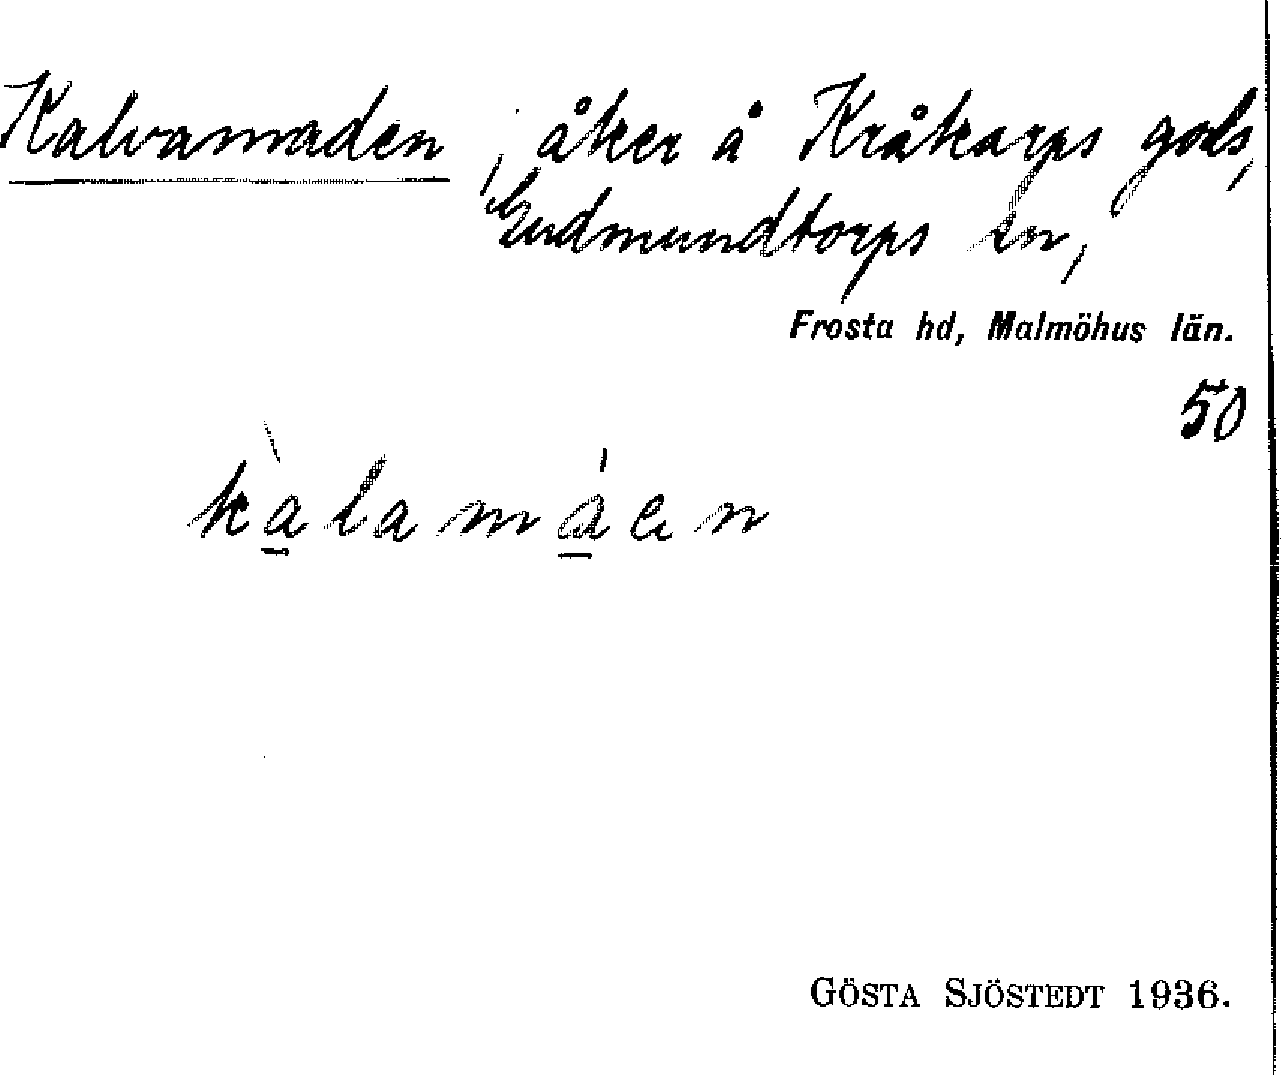 Kalvamaden, åker å Kråkarps gods,
Gudmundtorps sn,
Frosta hd, Malmöhus län.
50
GÖSTA SJÖSTEDT 1936.